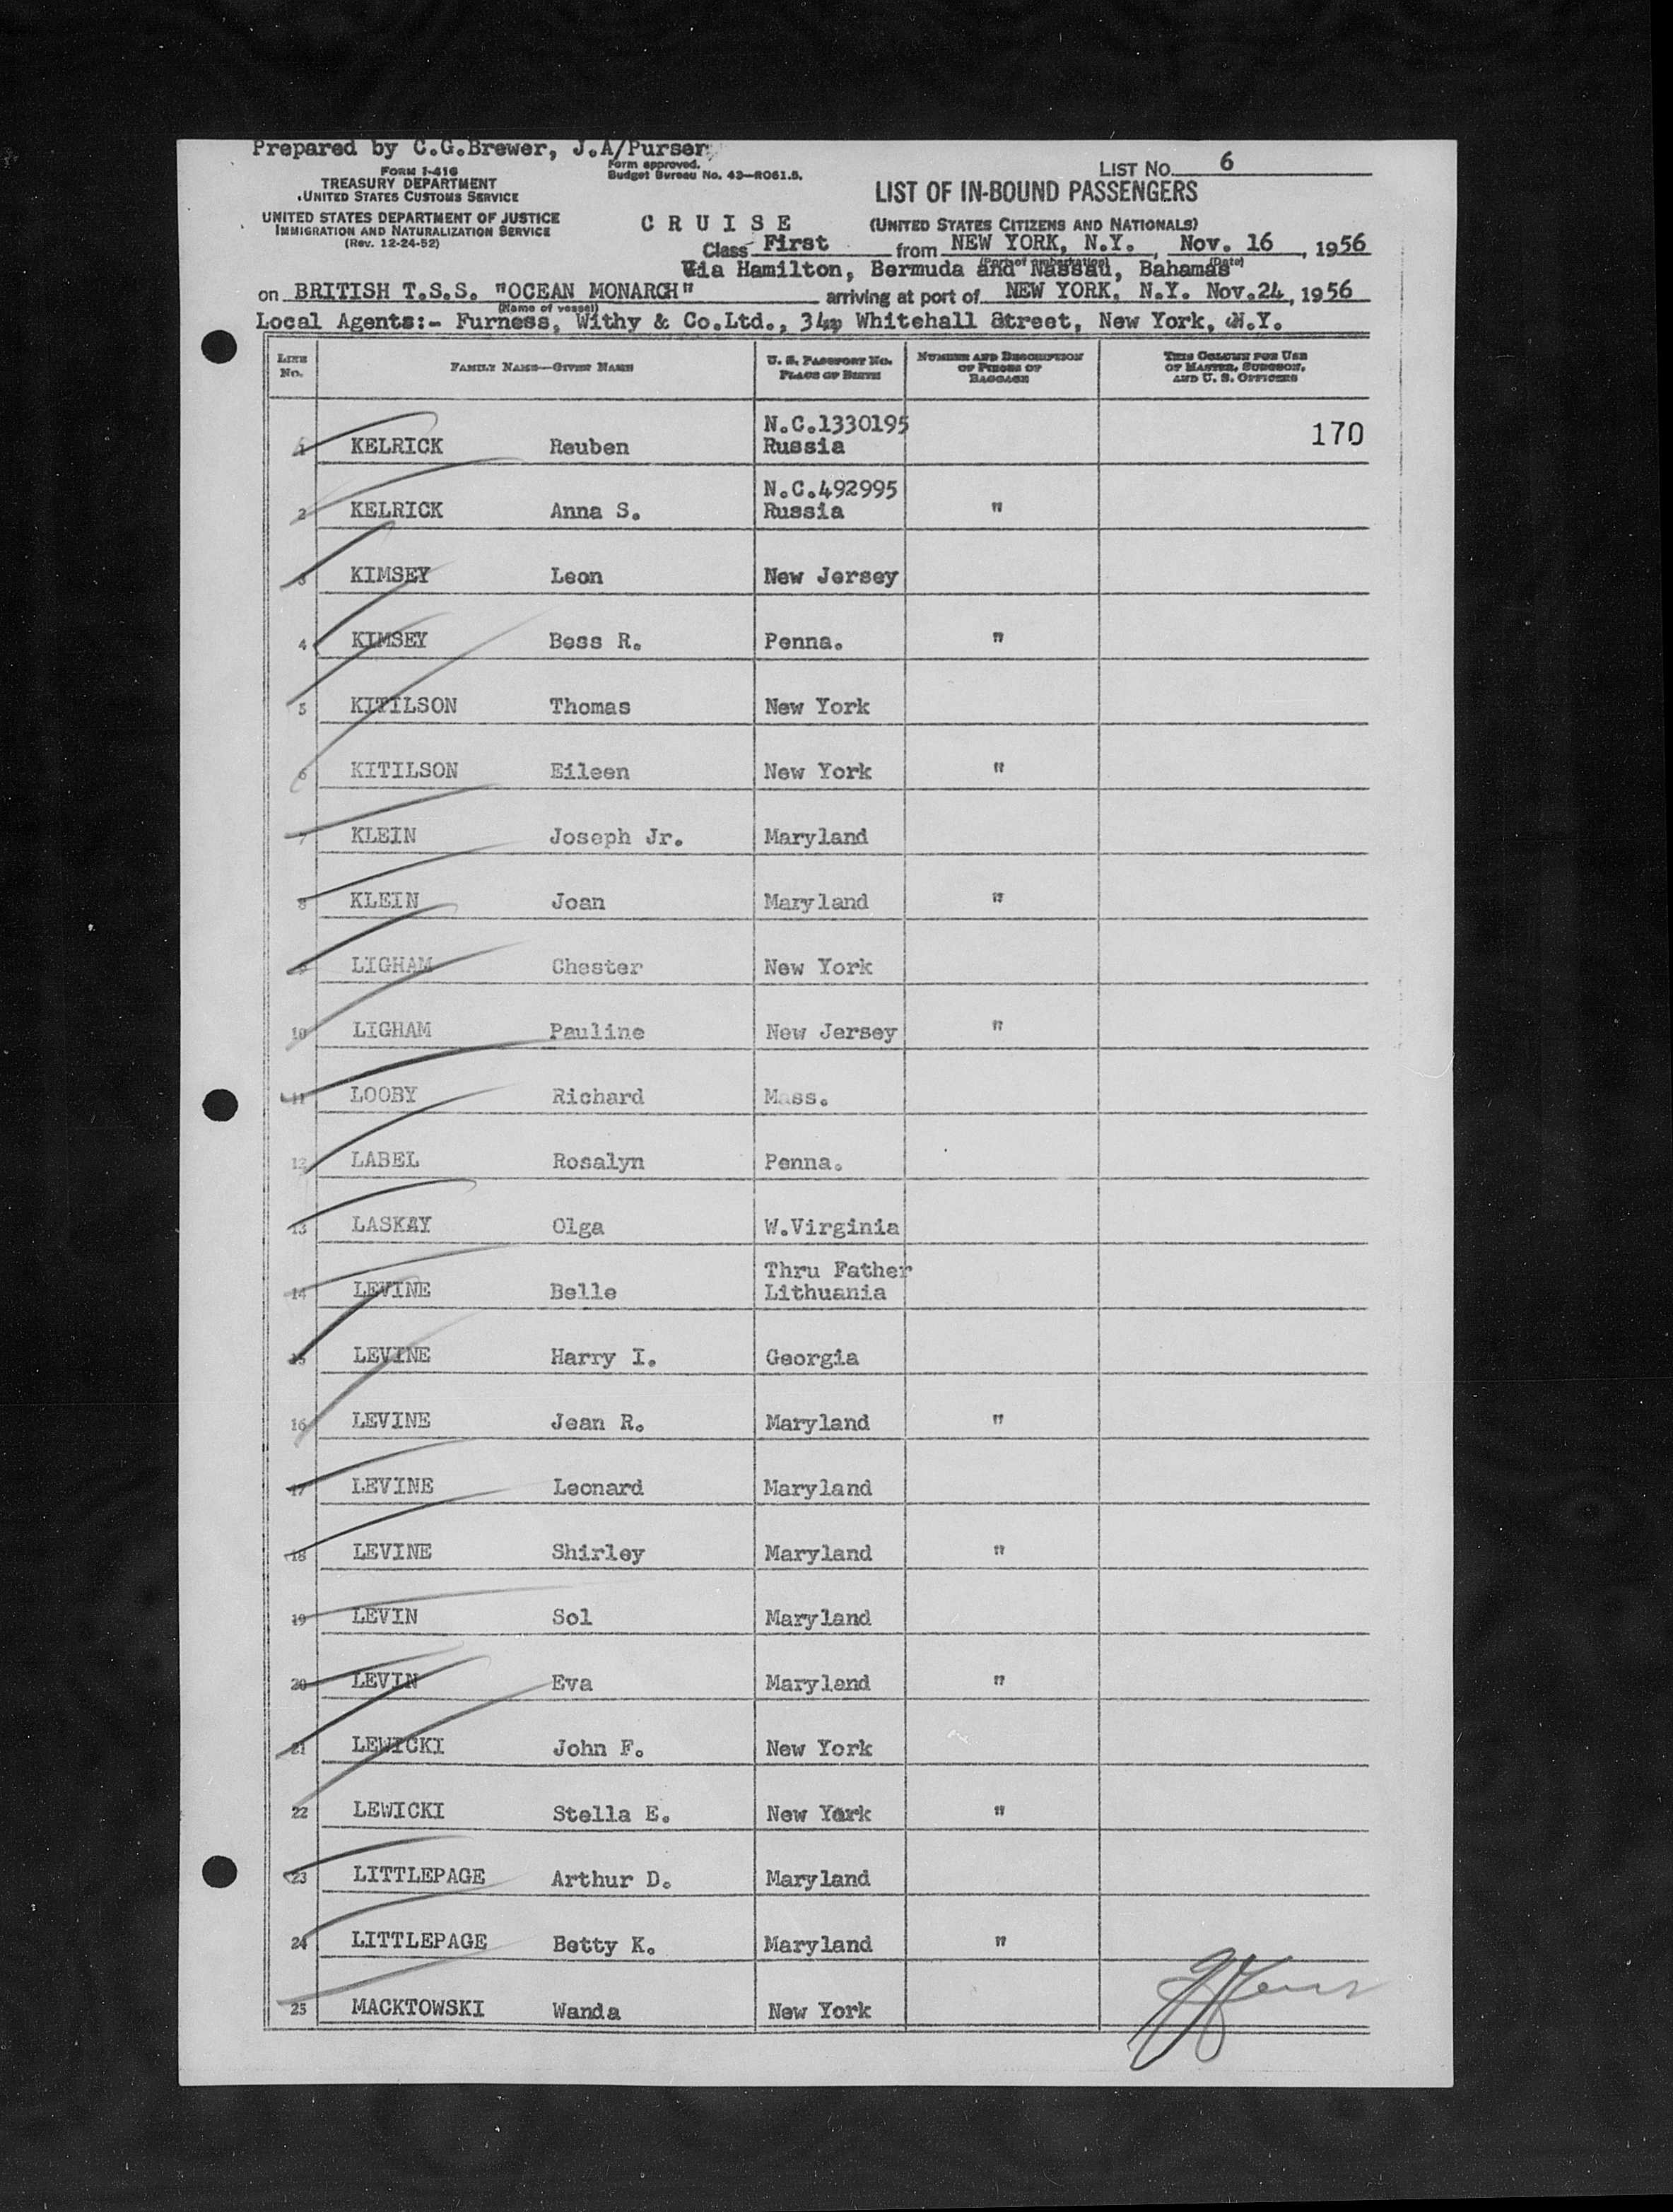 Prepared by C.G.Brewer, J.A/Purser
Form approved.
Budget Bureau No. 43—R061.5.
LIST No. 6
FORM I-416
TREASURY DEPARTMENT
UNITED STATES CUSTOMS SERVICE
LIST OF IN-BOUND PASSENGERS
UNITED STATES DEPARTMENT OF JUSTICE
IMMIGRATION AND NATURALIZATION SERVICE
(Rev. 12-24-52)
C R U I S E
(UNITED STATES CITIZENS AND NATIONALS)
Class First from NEW YORK, N.Y., Nov. 16, 1956
(Port of embarkation) (Date)
Via Hamilton, Bermuda and Nassau, Bahamas
on BRITISH T.S.S. "OCEAN MONARCH" arriving at port of NEW YORK, N.Y. Nov.24, 1956
(Name of vessel)
Local Agents:- Furness, Withy & Co.Ltd., 34, Whitehall Street, New York, N.Y.
LINE No. FAMILY NAME—GIVEN NAME U. S. PASSPORT NO. PLACE OF BIRTH NUMBER AND DESCRIPTION OF PIECES OF BAGGAGE THIS COLUMN FOR USE OF MASTER, SURGEON, AND U. S. OFFICERS
N.C.1330195
1 KELRICK Reuben Russia 170
N.C.492995
2 KELRICK Anna S. Russia "
3 KIMSEY Leon New Jersey
4 KIMSEY Bess R. Penna. "
5 KITILSON Thomas New York
6 KITILSON Eileen New York "
7 KLEIN Joseph Jr. Maryland
8 KLEIN Joan Maryland "
9 LIGHAM Chester New York
10 LIGHAM Pauline New Jersey "
11 LOOBY Richard Mass.
12 LABEL Rosalyn Penna.
13 LASKAY Olga W.Virginia
Thru Father
14 LEVINE Belle Lithuania
15 LEVINE Harry I. Georgia
16 LEVINE Jean R. Maryland "
17 LEVINE Leonard Maryland
18 LEVINE Shirley Maryland "
19 LEVIN Sol Maryland
20 LEVIN Eva Maryland "
21 LEWICKI John F. New York
22 LEWICKI Stella E. New York "
23 LITTLEPAGE Arthur D. Maryland
24 LITTLEPAGE Betty K. Maryland "
25 MACKTOWSKI Wanda New York